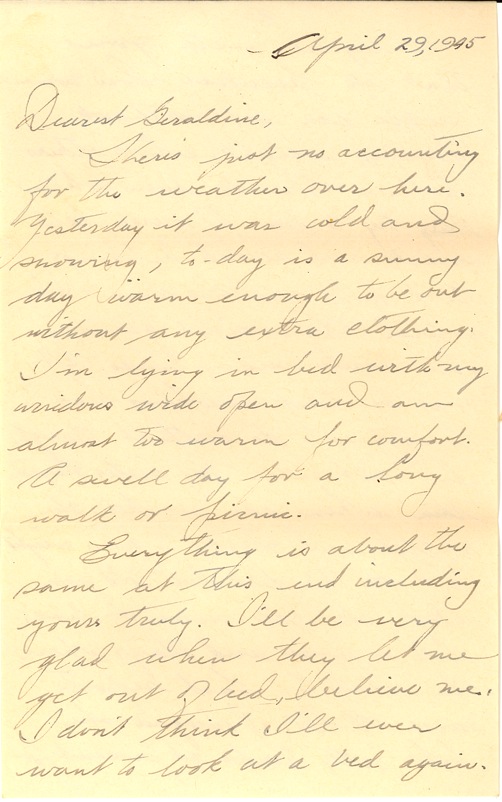 April 29, 1945
Dearest Geraldine,
Theris just no accounting
for the weather over here.
Yesterday it was cold and
snowing, to-day is a sunny
day warm enough to be out
without any extra clothing.
I'm lying in bed with my
windows wide open and am
almost too warm for comfort.
A swell day for a long
walk or picnic.
Everything is about the
same at this end including
yours truly. I'll be very
glad when they let me
get out of bed, believe me.
I don't think I'll ever
want to look at a bed again.